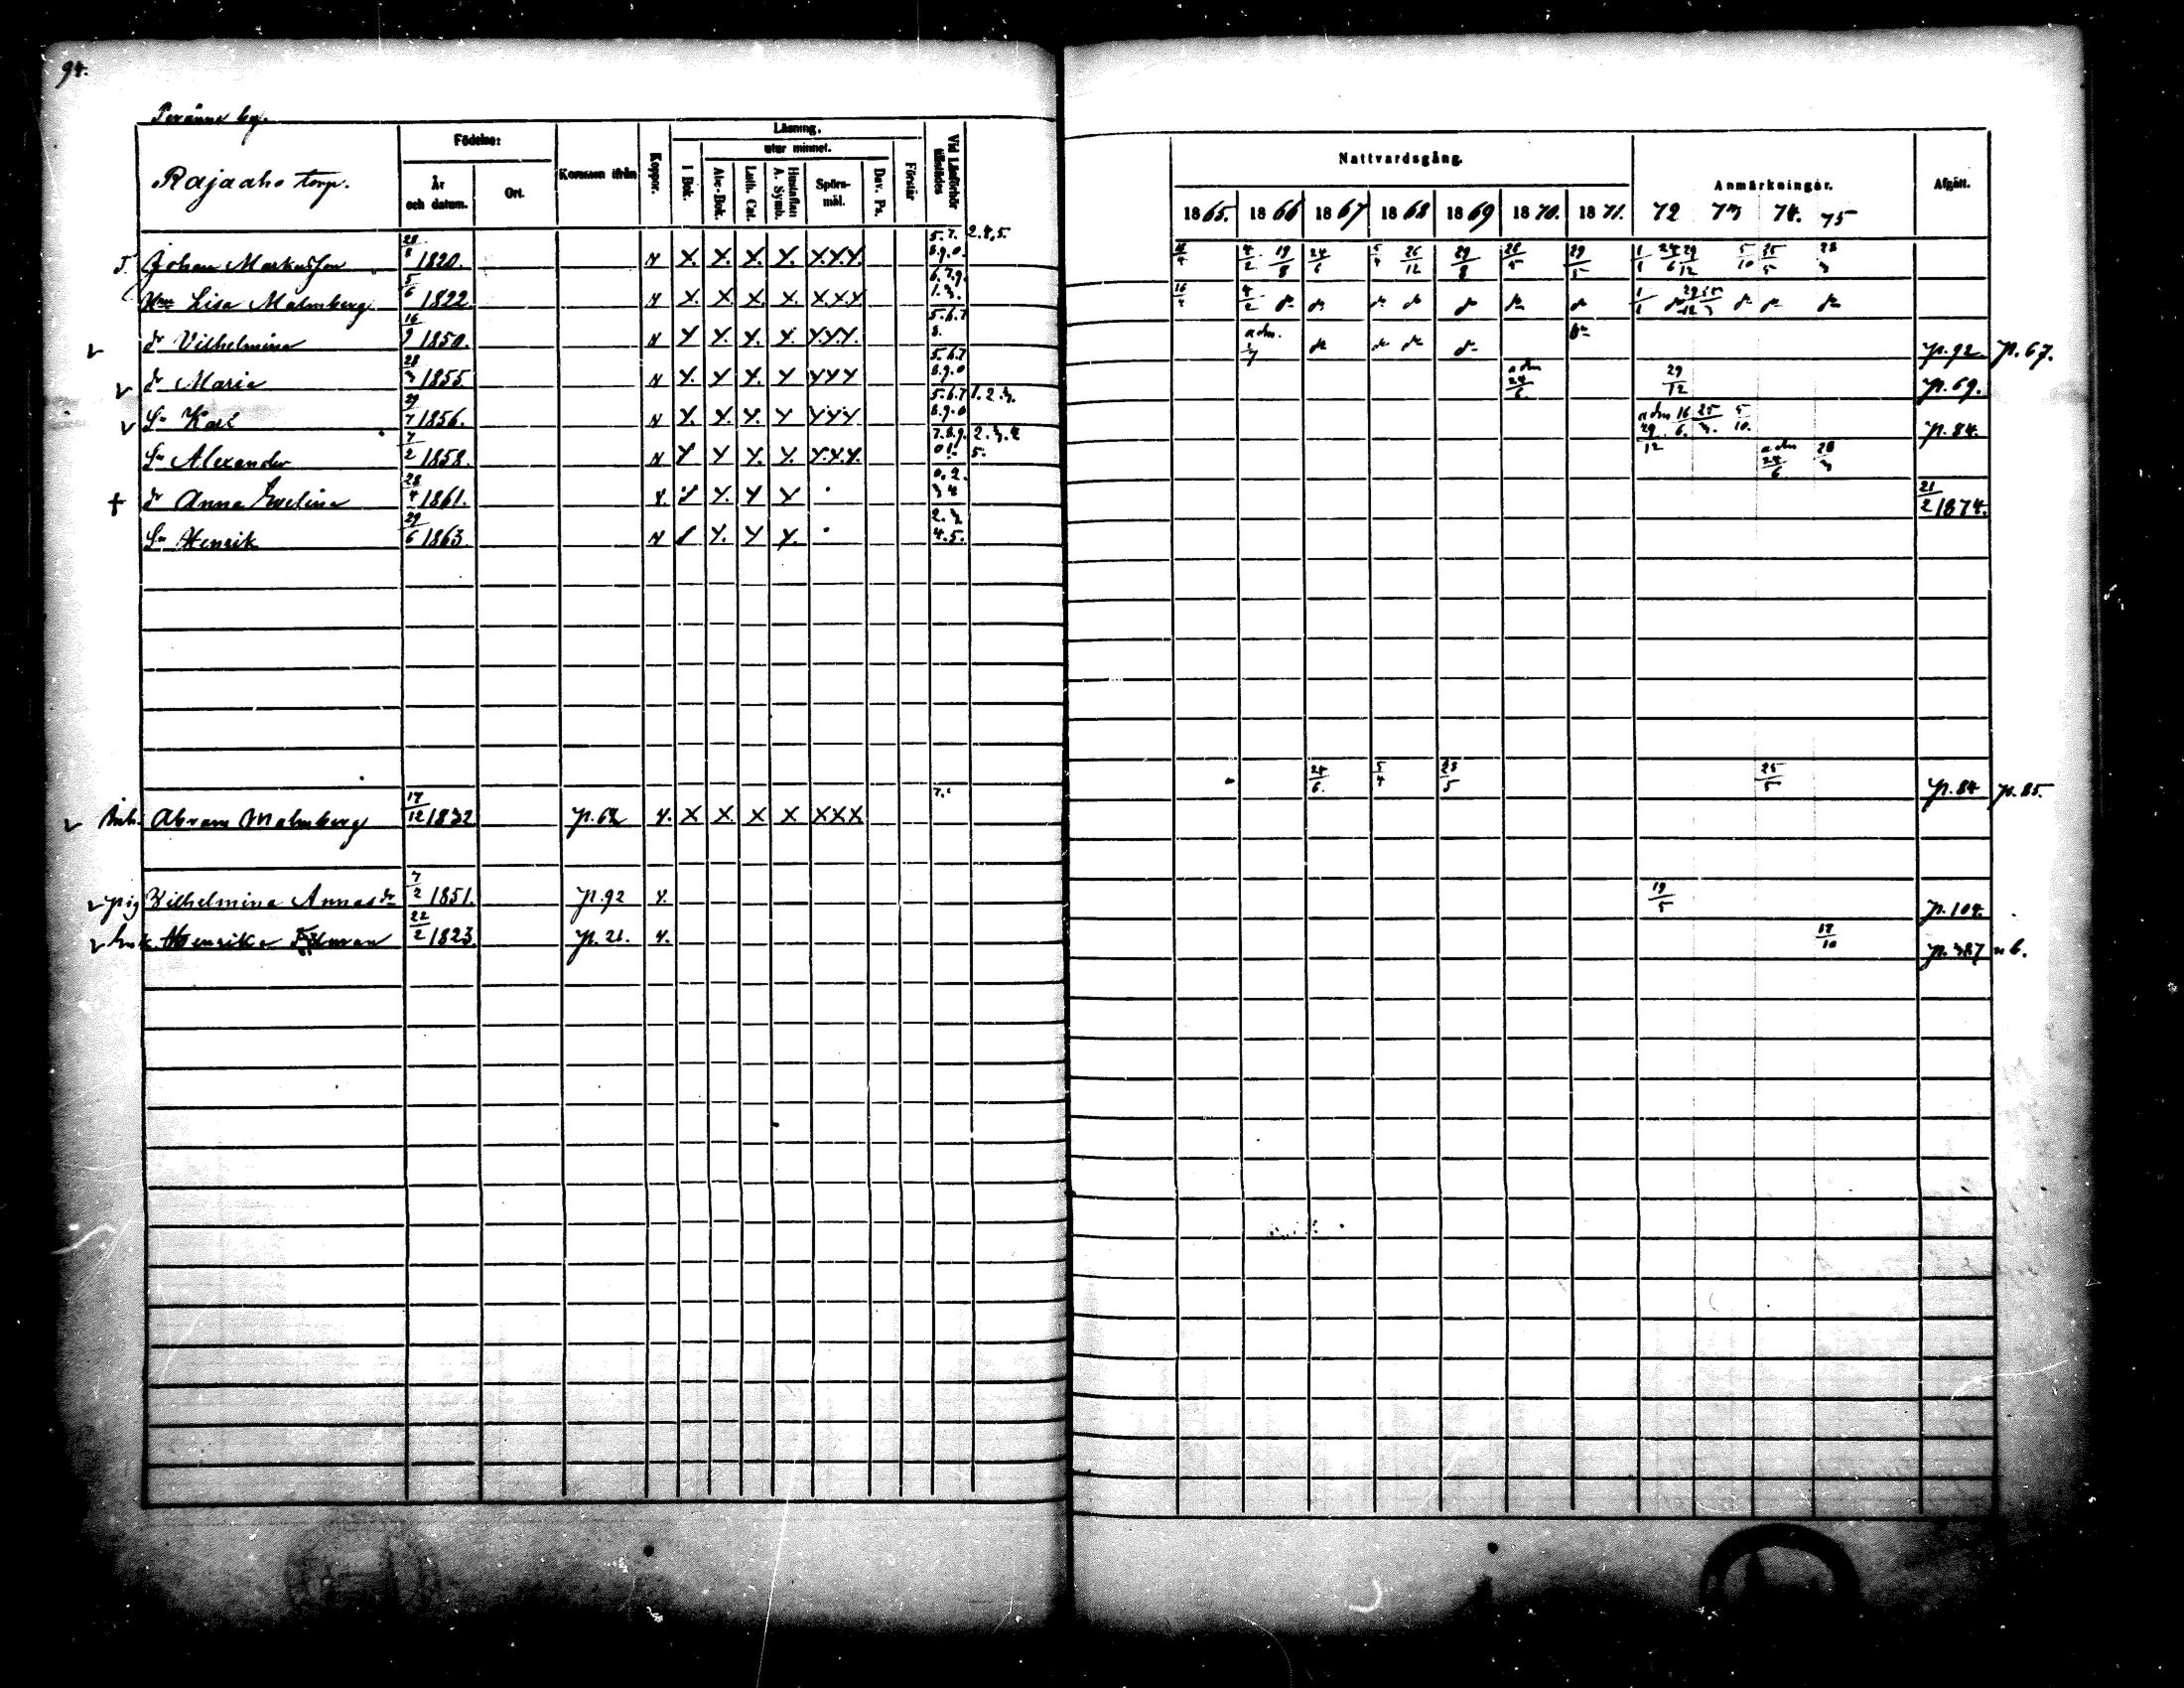 94.
Peränne by.
Rajaaho torp.
Födelse:
År och datum.
Ort.
Kommen ifrån
Koppor.
Läsning.
utur minnet.
I Bok.
Abc-Bok.
Luth. Cat.
Hustaflan A. Symb.
Spörs-mål.
Dav. Ps.
Förstår
Vid Läsförhör tillstädes
Nattvardsgång.
1865. 1866 1867 1868 1869 1870. 1871.
Anmärkningar.
72 73 74. 75
Afgått.
T. Johan Markusson 28/8 1820. X. X. X. X. X.X.X. 5.7. 8.9.0 2.4.5. 4/2 19/8 24/6 5/4 26/12 29/8 29/5 1/1 24/6 29/12 5/10 25/5 28/3
Hu Lisa Malmberg 5/6 1822. X. X. X. X. XXX 6.7.9. 1.3. 16/4 4/2 dn dn dn dn dn dn dn 1/1 dn 29/12 dn dn dn
v dr Vilhelmina 16/9 1850. Y Y. Y. Y. Y.Y.Y. 5.6.7 8. adm. 1/7 dn dn dn dn p.92. p.67.
v dr Maria 28/3 1855 Y. Y Y. Y YYY 5.6.7 8.9.0 adm 24/6. 29/12 p.69.
v Sn Karl 29/7 1856. Y. Y. Y. Y YYY 5.6.7 8.9.0 1.2.3. adm 29/12 16/6. 25/3. 5/10. p.84.
Sn Alexander 7/2 1858. Y Y Y. Y. Y.Y.Y. 7.8.9. 0.1. 2.3.4 5. adm 24/6. 28/3
+ dr Anna Evelina 28/4 1861. Y. Y Y. Y Y 0.2. 3 4 21/2 1874.
Sn Henrik 29/6 1863. Y. Y Y. 2.3 4.5.
v Inh. Abram Malmberg 17/12 1832 p.62 Y. X X X X XXX 7. 24/6. 5/4 23/5 25/5 p.84 p.85.
v pig Vilhelmina Annasdr 7/2 1851. p.92 Y. 19/5 p.104.
v Henrika 22/2 1823. p.21. Y. 17/10 p.387 n 6.